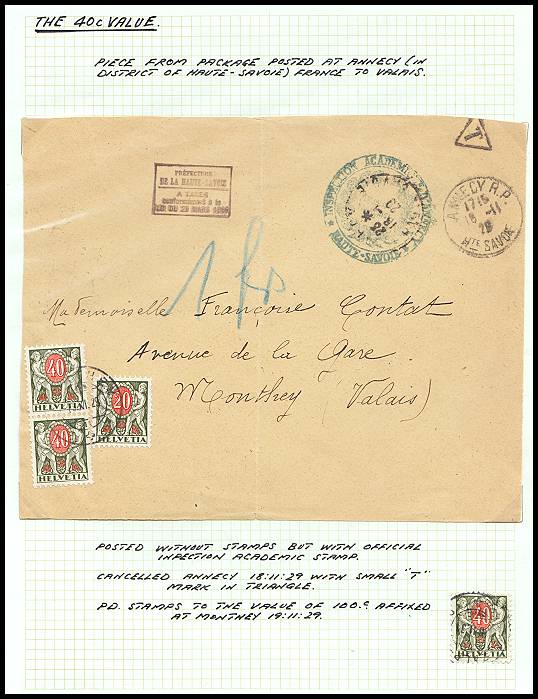 THE 40c VALUE.
PIECE FROM PACKAGE POSTED AT ANNECY (IN
DISTRICT OF HAUTE-SAVOIE) FRANCE TO VALAIS.
T
PRÉFECTURE
DE LA HAUTE-SAVOIE
A TAXER
conformément à la
LOI DU 29 MARS 1889
INSPECTION ACADEMIQUE D'ANNECY
* HAUTE-SAVOIE *
ANNECY R.P.
1715
18-11
29
HTE SAVOIE
1 fr
Mademoiselle Françoise Contat
Avenue de la Gare.
Monthey (Valais)
40
HELVETIA
20
HELVETIA
40
HELVETIA
POSTED WITHOUT STAMPS BUT WITH OFFICIAL
INPECTION ACADEMIC STAMP.
CANCELLED ANNECY 18:11:29 WITH SMALL "T"
MARK IN TRIANGLE.
P.D. STAMPS TO THE VALUE OF 100.c AFFIXED
AT MONTHEY 19:11:29.
40
HELVETIA